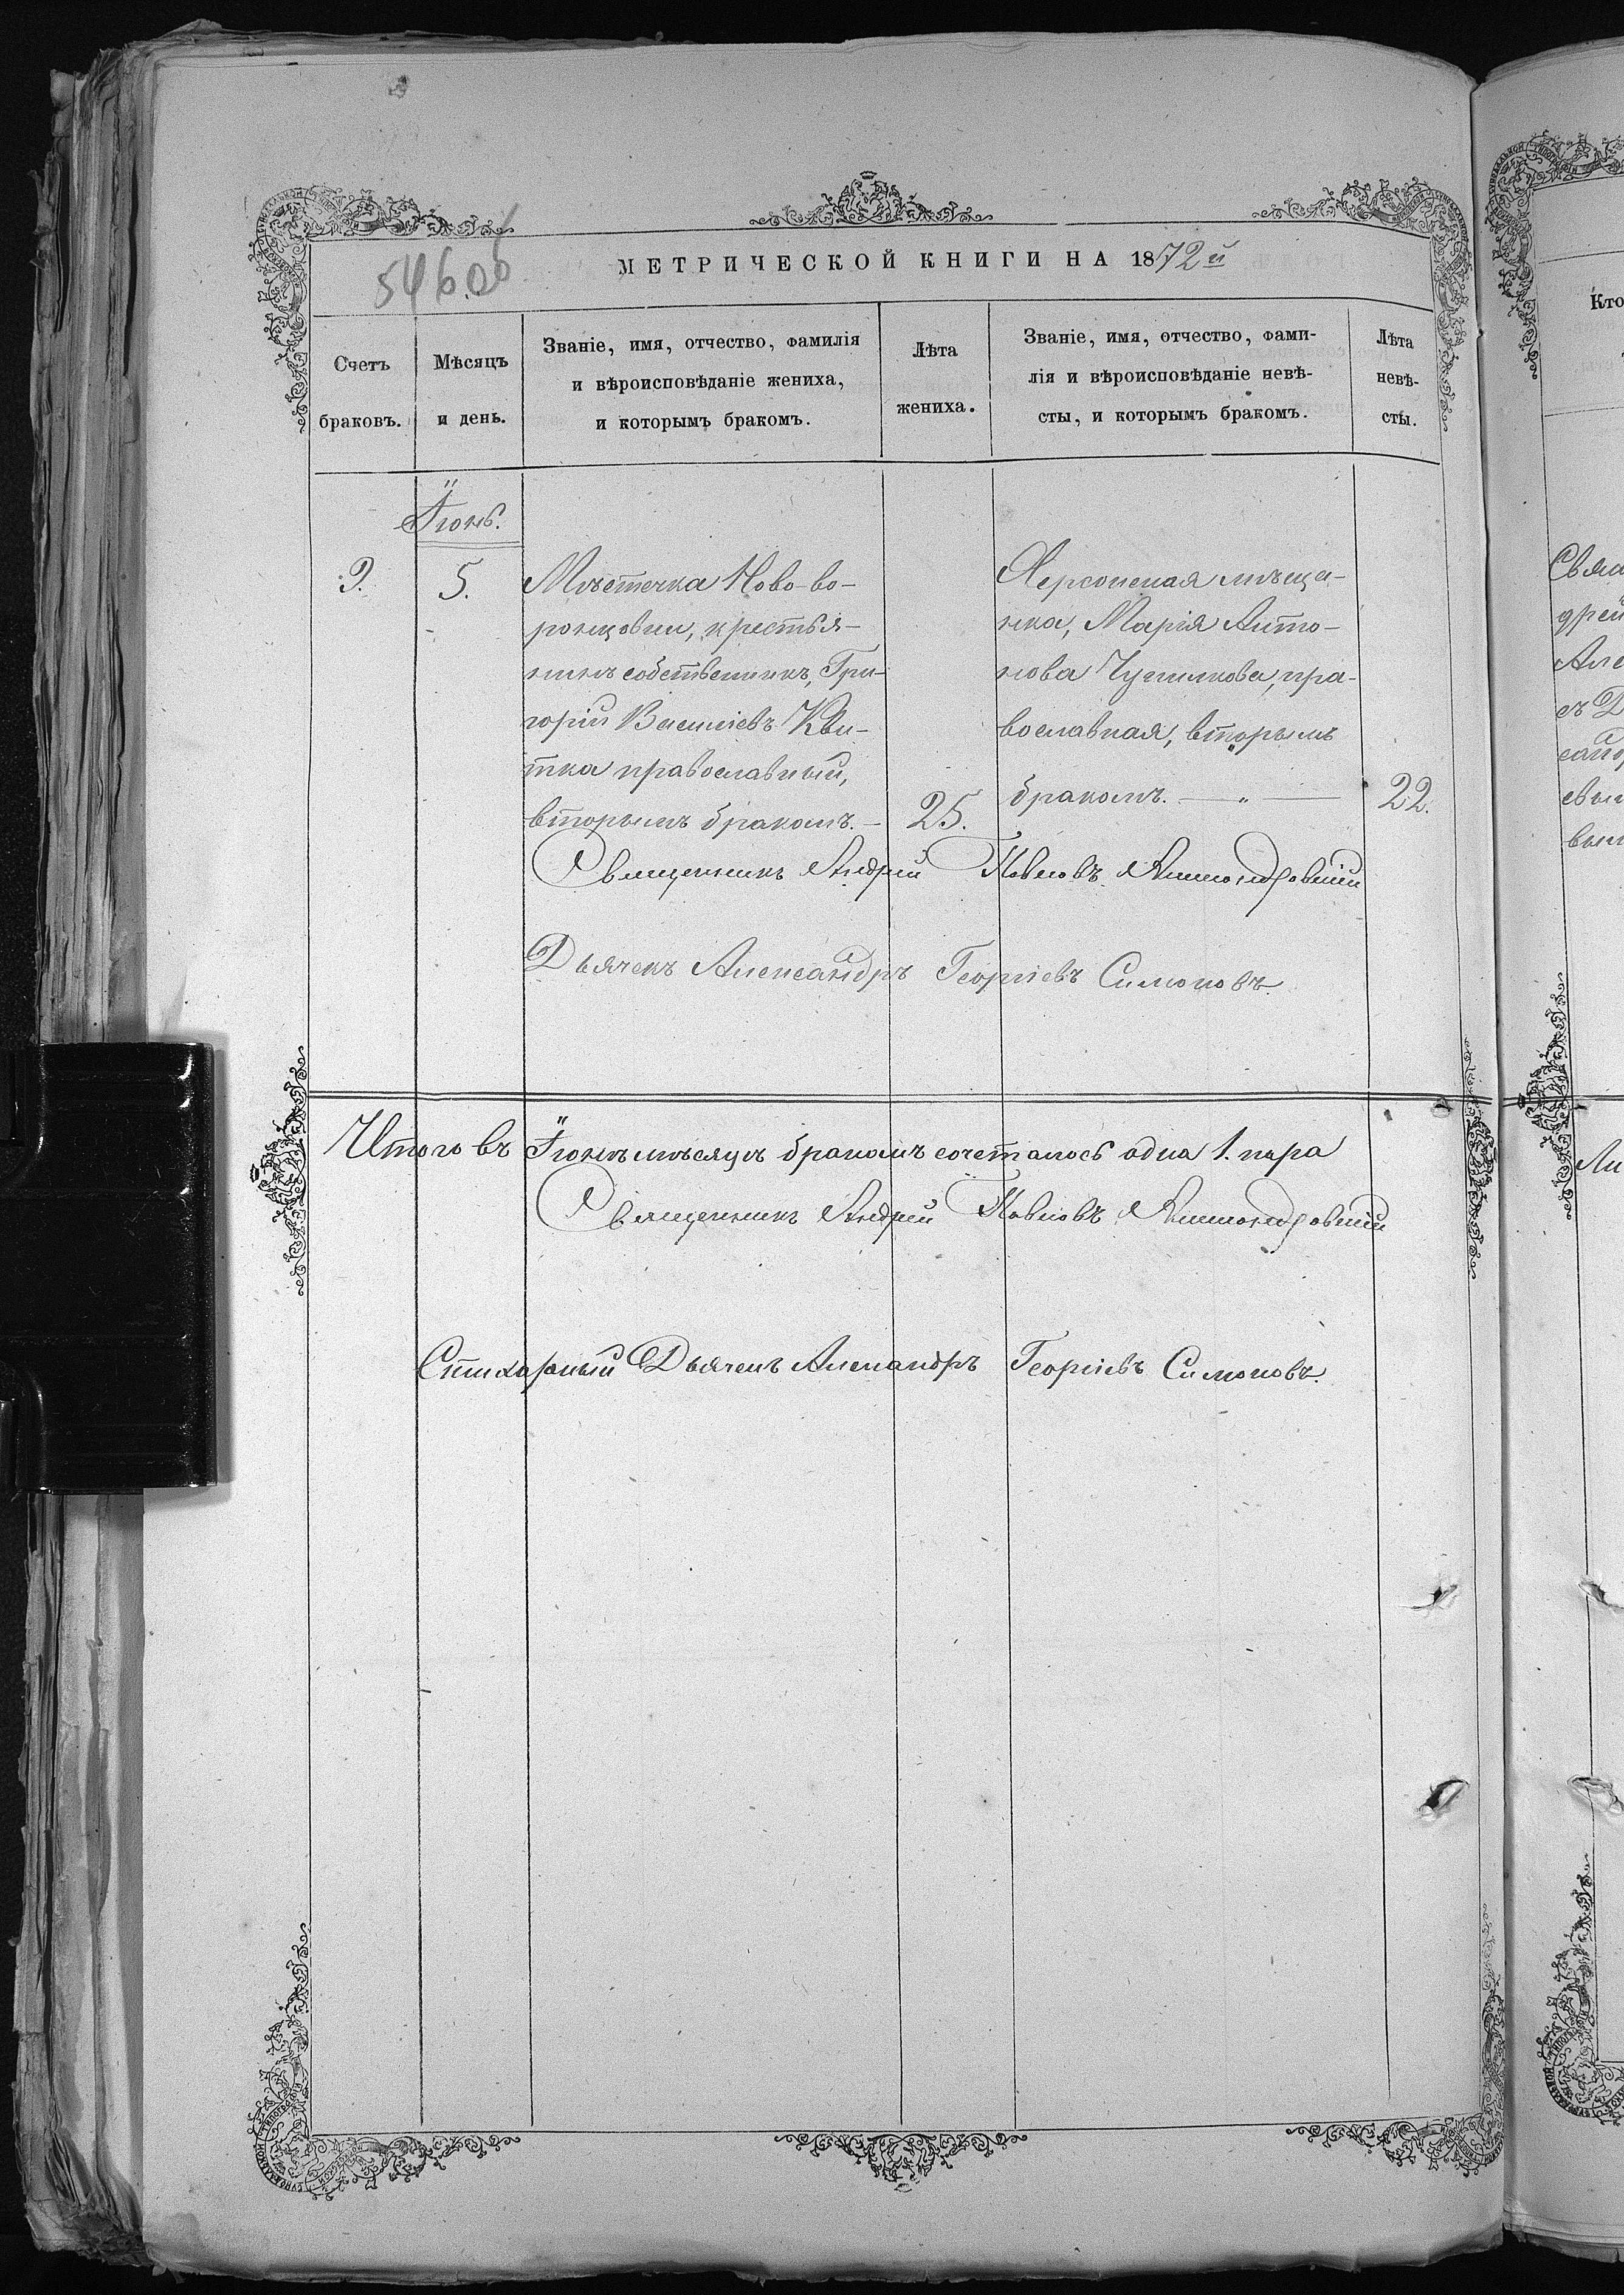 546об
МЕТРИЧЕСКОЙ КНИГИ НА 1872й
Счетъ браковъ.
Мѣсяцъ и день.
Званіе, имя, отчество, фамилія
и вѣроисповѣданіе жениха,
и которымъ бракомъ.
Лѣта жениха.
Званіе, имя, отчество, фами-
лія и вѣроисповѣданіе невѣ-
сты, и которымъ бракомъ.
Лѣта невѣ-
сты.
Іюнь.
9.
5.
Мѣстечка Ново-во-
ронцовки, крестья-
нинъ собственникъ, Гри-
горій Василіевъ Кви-
тка православный,
вторымъ бракомъ. —
25.
Херсонская мѣща-
нка, Марія Анто-
нова, пра-
вославная, вторымъ
бракомъ. — „ —
22.
Священникъ Андрей Павловъ
Дьячекъ Александръ Георгіевъ Симоновъ.
Итого въ Іюнѣ мѣсяцѣ бракомъ сочеталось одна 1. пара
Священникъ Андрей Павловъ
Стихарный Дьячекъ Александръ Георгіевъ Симоновъ.
Кто
Свя
дрей
Але
съ
санд
евы
вым
Ли